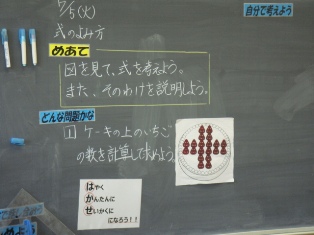 7/5(火)
自分で考えよう
式のよみ方
めあて
図を見て、式を考えよう。
また、そのわけを説明しよう。
どんな問題かな
1 ケーキの上のいちご
の数を計算して求めよう。
はやく
かんたんに
せいかくに
になろう!!